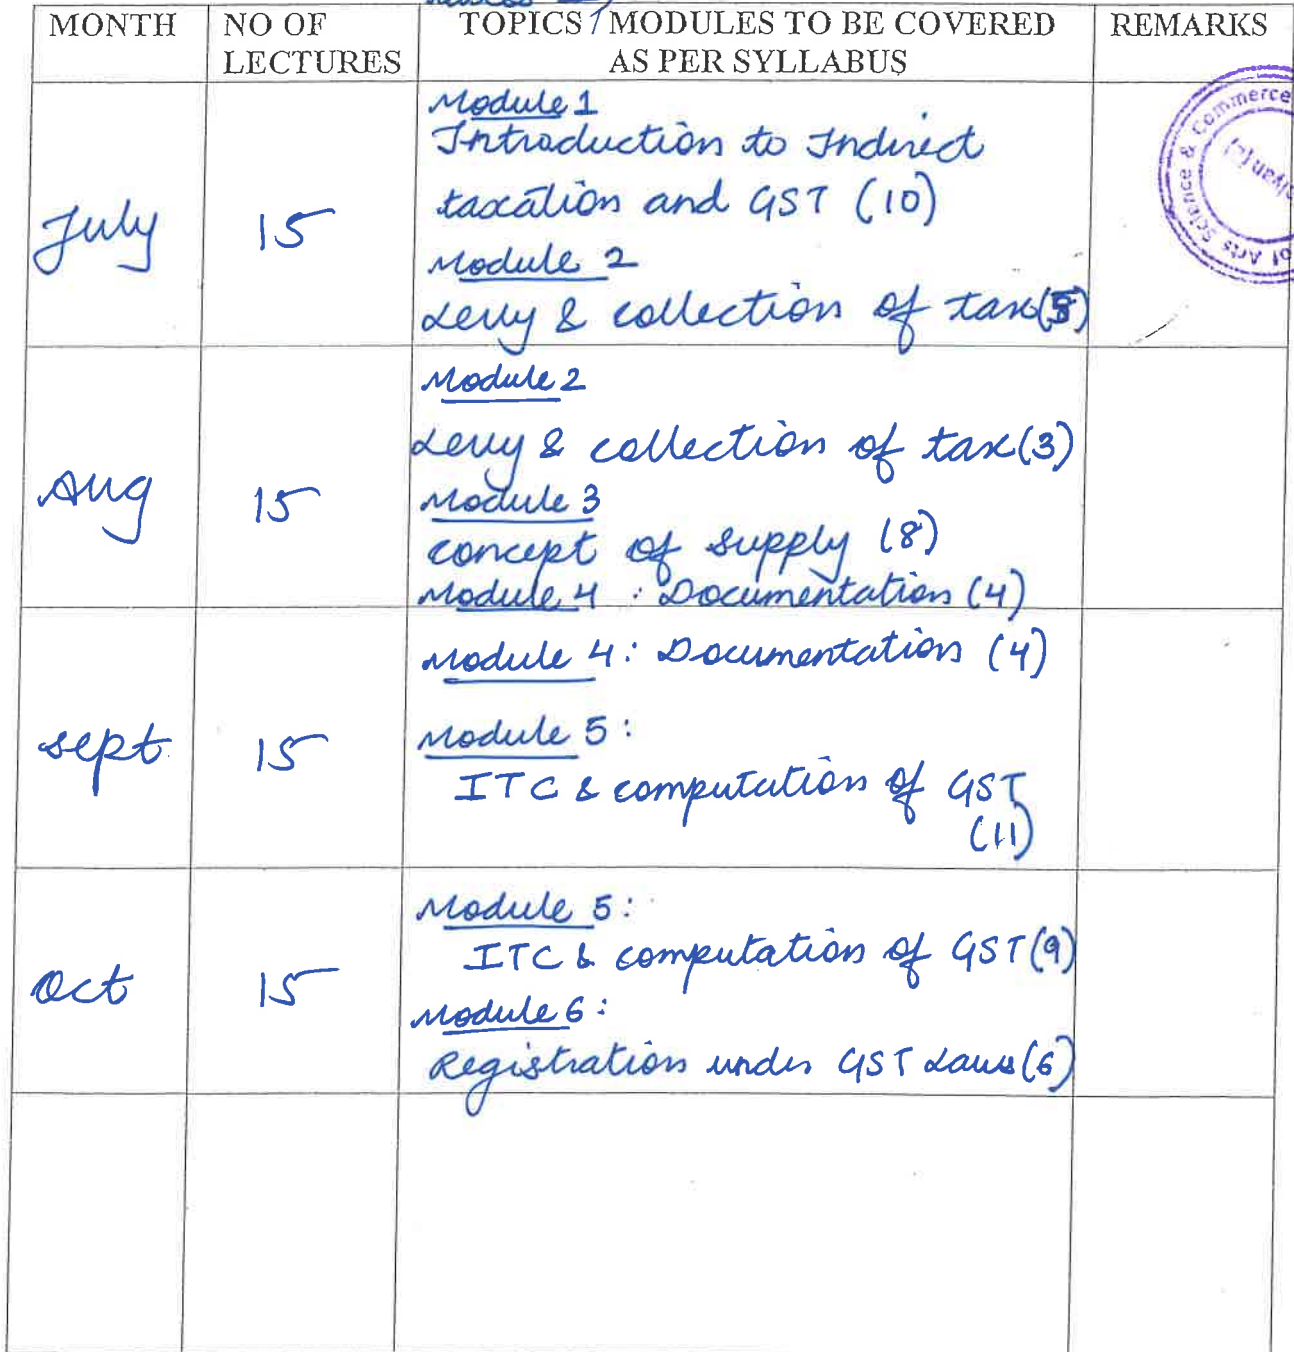 MONTH
NO OF
LECTURES
TOPICS / MODULES TO BE COVERED
AS PER SYLLABUS
REMARKS
July
15
Module 1
Introduction to Indirect
taxation and GST (10)
Module 2
Levy & collection of tax (5)
Commerce
Science &
of Arts
Aug
15
Module 2
Levy & collection of tax (3)
Module 3
concept of supply (8)
Module 4 : Documentation (4)
Sept
15
Module 4 : Documentation (4)
Module 5 :
ITC & computation of GST
(11)
Oct
15
Module 5 :
ITC & computation of GST (9)
Module 6 :
Registration under GST Laws (6)